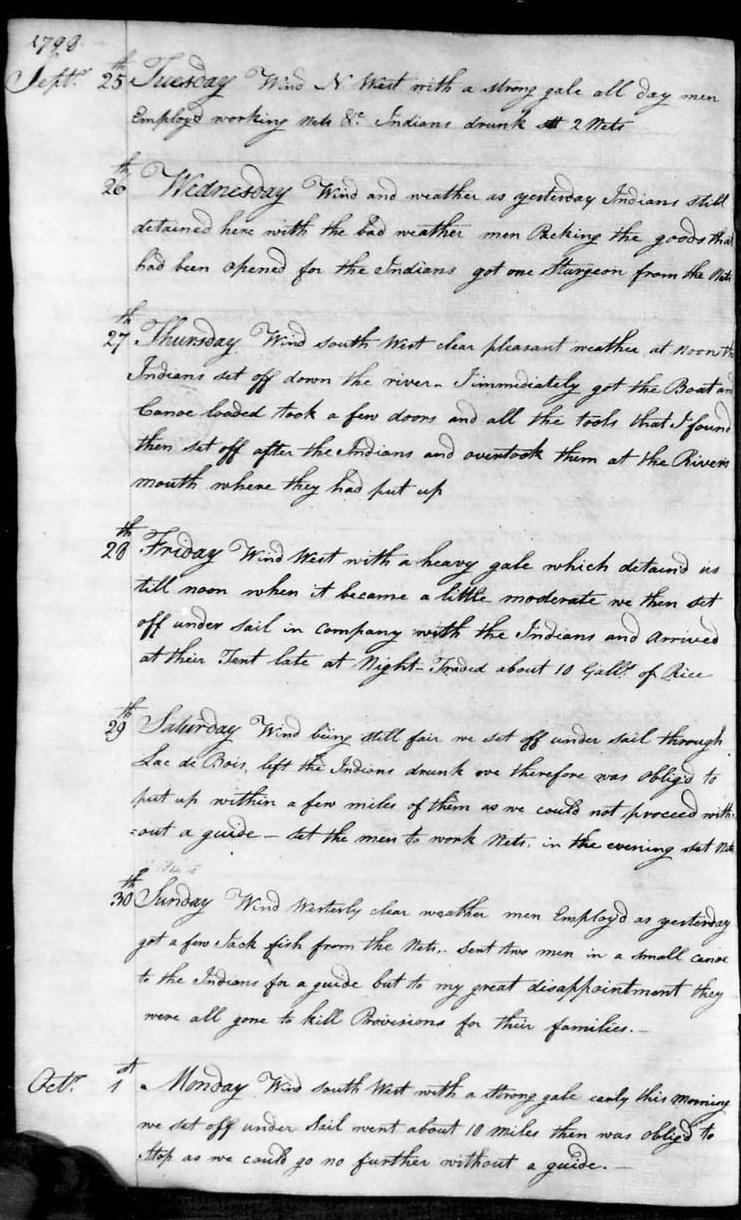 1798
Septr. 25th Tuesday Wind N West with a strong gale all day men
Employd working Nets &c Indians drunk set 2 Nets
26th Wednesday Wind and weather as yesterday Indians still
detained here with the bad weather men Packing the goods that
had been opened for the Indians got one Sturgeon from the Nets
27th Thursday Wind South West clear pleasant weather at Noon the
Indians set off down the river - I immediately got the Boat and
Canoe loaded took a few doors and all the tools that I found
then set off after the Indians and overtook them at the Rivers
mouth where they had put up
28th Friday Wind West with a heavy gale which detain'd us
till noon when it became a little moderate we then set
off under sail in company with the Indians and arrived
at their Tent late at Night - Traded about 10 Galls. of Rice
29th Saturday Wind being still fair we set off under sail through
Lac de Bois, left the Indians drunk we therefore was oblig'd to
put up within a few miles of them as we could not proceed with-
=out a guide - set the men to work Nets. in the evening set Nets
30th Sunday Wind Westerly clear weather men Employ'd as yesterday
got a few Jack fish from the Nets. sent two men in a small canoe
to the Indians for a guide but to my great disappointment they
were all gone to kill Provisions for their families. -
Octr. 1st Monday Wind South West with a strong gale early this morning
we set off under Sail went about 10 miles then was oblig'd to
Stop as we could go no further without a guide. -